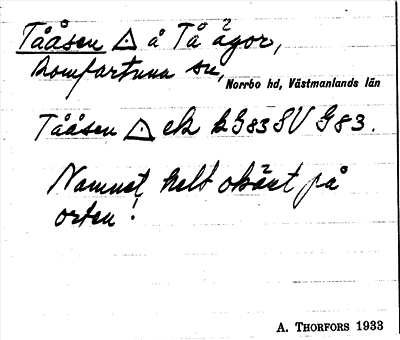 Tååsen △ å Tå ägor,
Romfartuna sn,
Norrbo hd, Västmanlands län
Tååsen △ ek bG83SV G83.
Namnet helt okänt på
orten!
A. THORFORS 1933